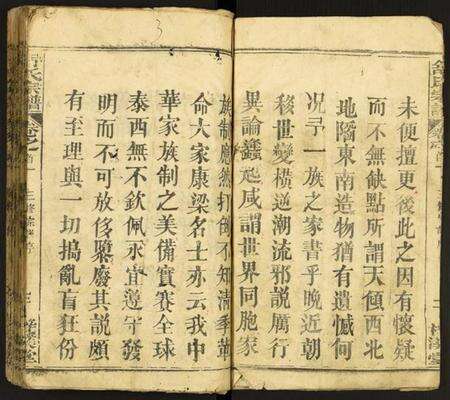 未便擅更後此之因有懷疑
而不無缺點所謂天傾西北
地陷東南造物猶有遺憾何
况曰一族之家書乎晚近朝
移世變橫逆潮流邪說厲行
異論蠭起咸謂世界同胞家
族制應然打倒不知清季革
命大家康梁名士亦云我中
華家族制之美備實賽全球
泰西無不欽佩永宜遵守發
明而不可放侈鄹廢其說頗
有至理與一切搗亂盲狂份
氏宗譜
卷之首
三
3